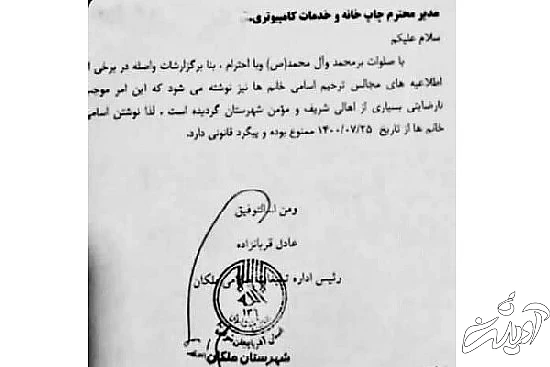 مدیر محترم چاپ خانه و خدمات کامپیوتری.
سلام علیکم
با صلوات برمحمد وآل محمد(ص) وبا احترام ، بنا برگزارشات واصله در برخی
اطلاعیه های مجالس ترحیم اسامی خانم ها نیز نوشته می شود که این امر موجب
نارضایتی بسیاری از اهالی شریف و مؤمن شهرستان گردیده است . لذا نوشتن اسامی
خانم ها از تاریخ ۱۴۰۰/۰۷/۲۵ ممنوع بوده و پیگرد قانونی دارد.
ومن الله التوفیق
عادل قربانزاده
رئیس اداره تبلیغات اسلامی ملکان
۱۳۶
شهرستان ملکان
آویتنت